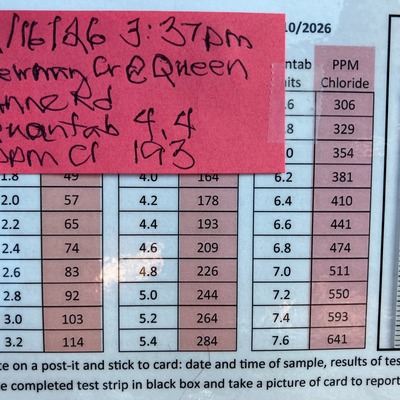 /16/26 3:37pm
Cr @ Queen
Anne Rd
Quantab 4.4
ppm Cl 193
10/2026
ntab PPM
its Chloride
.6 306
.8 329
.0 354
1.8 49 4.0 164 6.2 381
2.0 57 4.2 178 6.4 410
2.2 65 4.4 193 6.6 441
2.4 74 4.6 209 6.8 474
2.6 83 4.8 226 7.0 511
2.8 92 5.0 244 7.2 550
3.0 103 5.2 264 7.4 593
3.2 114 5.4 284 7.6 641
te on a post-it and stick to card: date and time of sample, results of tes
e completed test strip in black box and take a picture of card to report